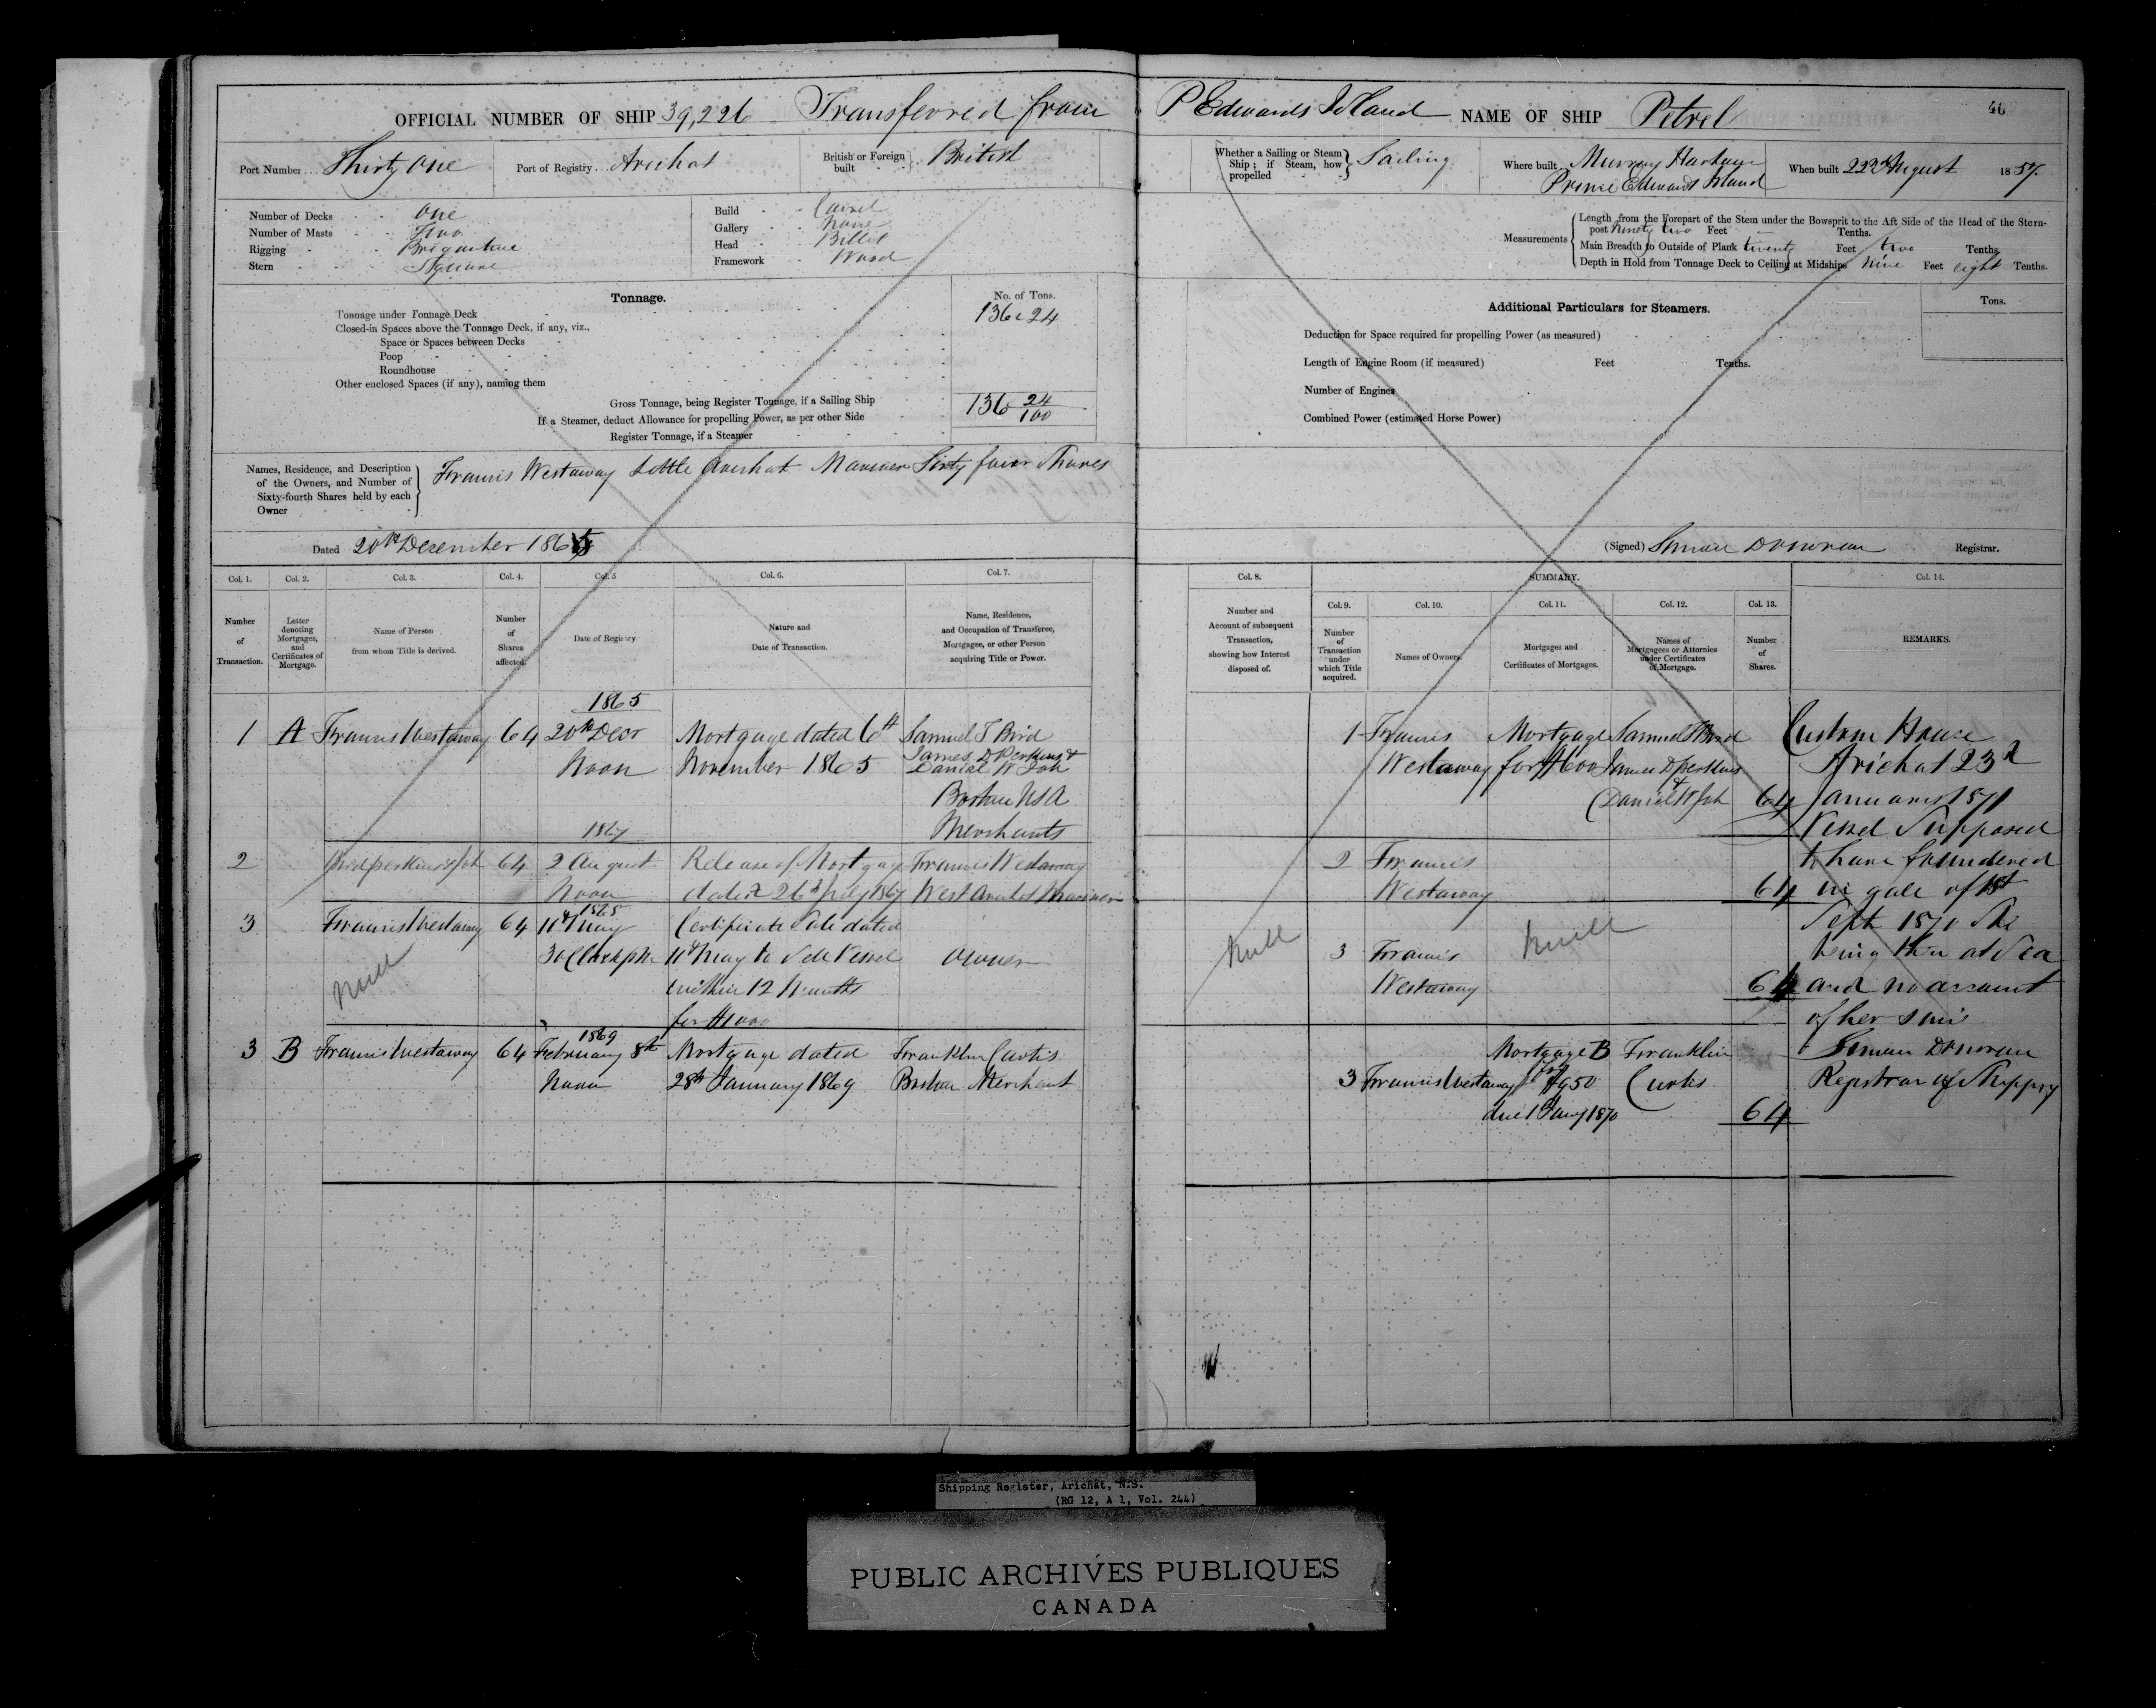 OFFICIAL NUMBER OF SHIP 39,226 Transferred from P Edwards Island NAME OF SHIP Petrel 40
Port Number Thirty One Port of Registry Arichat British or Foreign built British
Whether a Sailing or Steam Ship; if Steam, how propelled Sailing
Where built Murray Harbour Prince Edwards Island When built 22nd August 1857
Number of Decks One
Number of Masts Two
Rigging Brigantine
Stern Square
Build Carvel
Gallery None
Head Billet
Framework Wood
Measurements
Length from the Forepart of the Stem under the Bowsprit to the Aft Side of the Head of the Stern-
post Ninety two Feet - Tenths.
Main Breadth to Outside of Plank twenty Feet two Tenths.
Depth in Hold from Tonnage Deck to Ceiling at Midships Nine Feet eight Tenths.
Tonnage. No. of Tons.
Tonnage under Tonnage Deck 136.24
Closed-in Spaces above the Tonnage Deck, if any, viz.,
Space or Spaces between Decks
Poop
Roundhouse
Other enclosed Spaces (if any), naming them
Gross Tonnage, being Register Tonnage, if a Sailing Ship 136 24/100
If a Steamer, deduct Allowance for propelling Power, as per other Side
Register Tonnage, if a Steamer
Additional Particulars for Steamers. Tons.
Deduction for Space required for propelling Power (as measured)
Length of Engine Room (if measured) Feet Tenths.
Number of Engines
Combined Power (estimated Horse Power)
Names, Residence, and Description
of the Owners, and Number of
Sixty-fourth Shares held by each
Owner
Francis Westaway Little Arichat Mariner Sixty four Shares
Dated 20th December 1865
(Signed) Simon Donovan Registrar.
Col. 1. Col. 2. Col. 3. Col. 4. Col. 5 Col. 6. Col. 7.
Number of Transaction.
Letter denoting Mortgages, and Certificates of Mortgage.
Name of Person from whom Title is derived.
Number of Shares affected.
Date of Registry
Nature and Date of Transaction.
Name, Residence, and Occupation of Transferee, Mortgagee, or other Person acquiring Title or Power.
Col. 8. SUMMARY. Col. 14.
Col. 9. Col. 10. Col. 11. Col. 12. Col. 13.
Number and Account of subsequent Transaction, showing how Interest disposed of.
Number of Transaction under which Title acquired.
Names of Owners.
Mortgages and Certificates of Mortgages.
Names of Mortgagees or Attornies under Certificates of Mortgage.
Number of Shares.
REMARKS.
1865
1 A Francis Westaway 64 20th Decr Mortgage dated 6th Samuel T Bird
James D Perkins &
Noon November 1865 Daniel W Job
Boston USA
Merchants
1867
2 Bird Perkins & Job 64 2 August Release of Mortgage Francis Westaway
Noon dated 26th July 1867 West Arichat Mariner
1868
3 Francis Westaway 64 11th May Certificate Sale dated
3 OClock pm 11th May to Sell Vessel Owner
Null within 12 Months
for $1000
1869
3 B Francis Westaway 64 February 8th Mortgage dated Franklin Curtis
Noon 28th January 1869 Boston Merchant
1 Francis Mortgage Samuel T Bird
Westaway for $1600 James D Perkins
& Daniel W Job 64
2 Francis
Westaway 64
Null 3 Francis Null
Westaway 64
Mortgage B Franklin
3 Francis Westaway for $950 Curtis
due 1 Jany 1870 64
Custom House
Arichat 23d
January 1871
Vessel Supposed
to have foundered
in gale of 1st
Sept 1870 She
being then at Sea
and no account
of her since
Simon Donovan
Registrar of Shippg
Shipping Register, Arichat, N.S.
(RG 12, A 1, Vol. 244)
PUBLIC ARCHIVES PUBLIQUES
CANADA